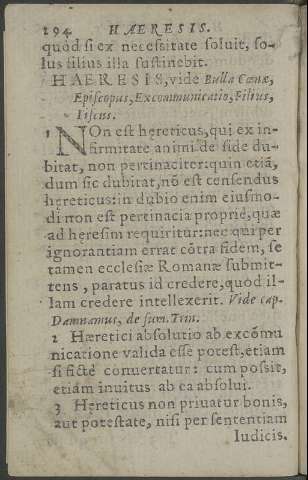 294 HAERESIS.
quòd si ex necessitate soluit, so-
lus filius illa sustinebit.
HAERESIS, vide Bulla Cœnæ,
Episcopus, Excommunicatio, Filius,
Fiscus.
1 NOn est hęreticus, qui ex in-
firmitate animi de fide du-
bitat, non pertinaciter: quin etiã,
dum sic dubitat, nõ est censendus
hęreticus: in dubio enim eiusmo-
di non est pertinacia propriè, quæ
ad heresim requiritur: nec qui per
ignorantiam errat cõtra fidem, se
tamen ecclesiæ Romanæ submit-
tens, paratus id credere, quod il-
lam credere intellexerit. Vide cap.
Damnamus, de sum. Trin.
2 Hæretici absolutio ab excõmu
nicatione valida esse potest, etiam
si fictè conuertatur: cum possit,
etiam inuitus ab ea absolui.
3 Hęreticus non priuatur bonis,
aut potestate, nisi per sententiam
Iudicis.